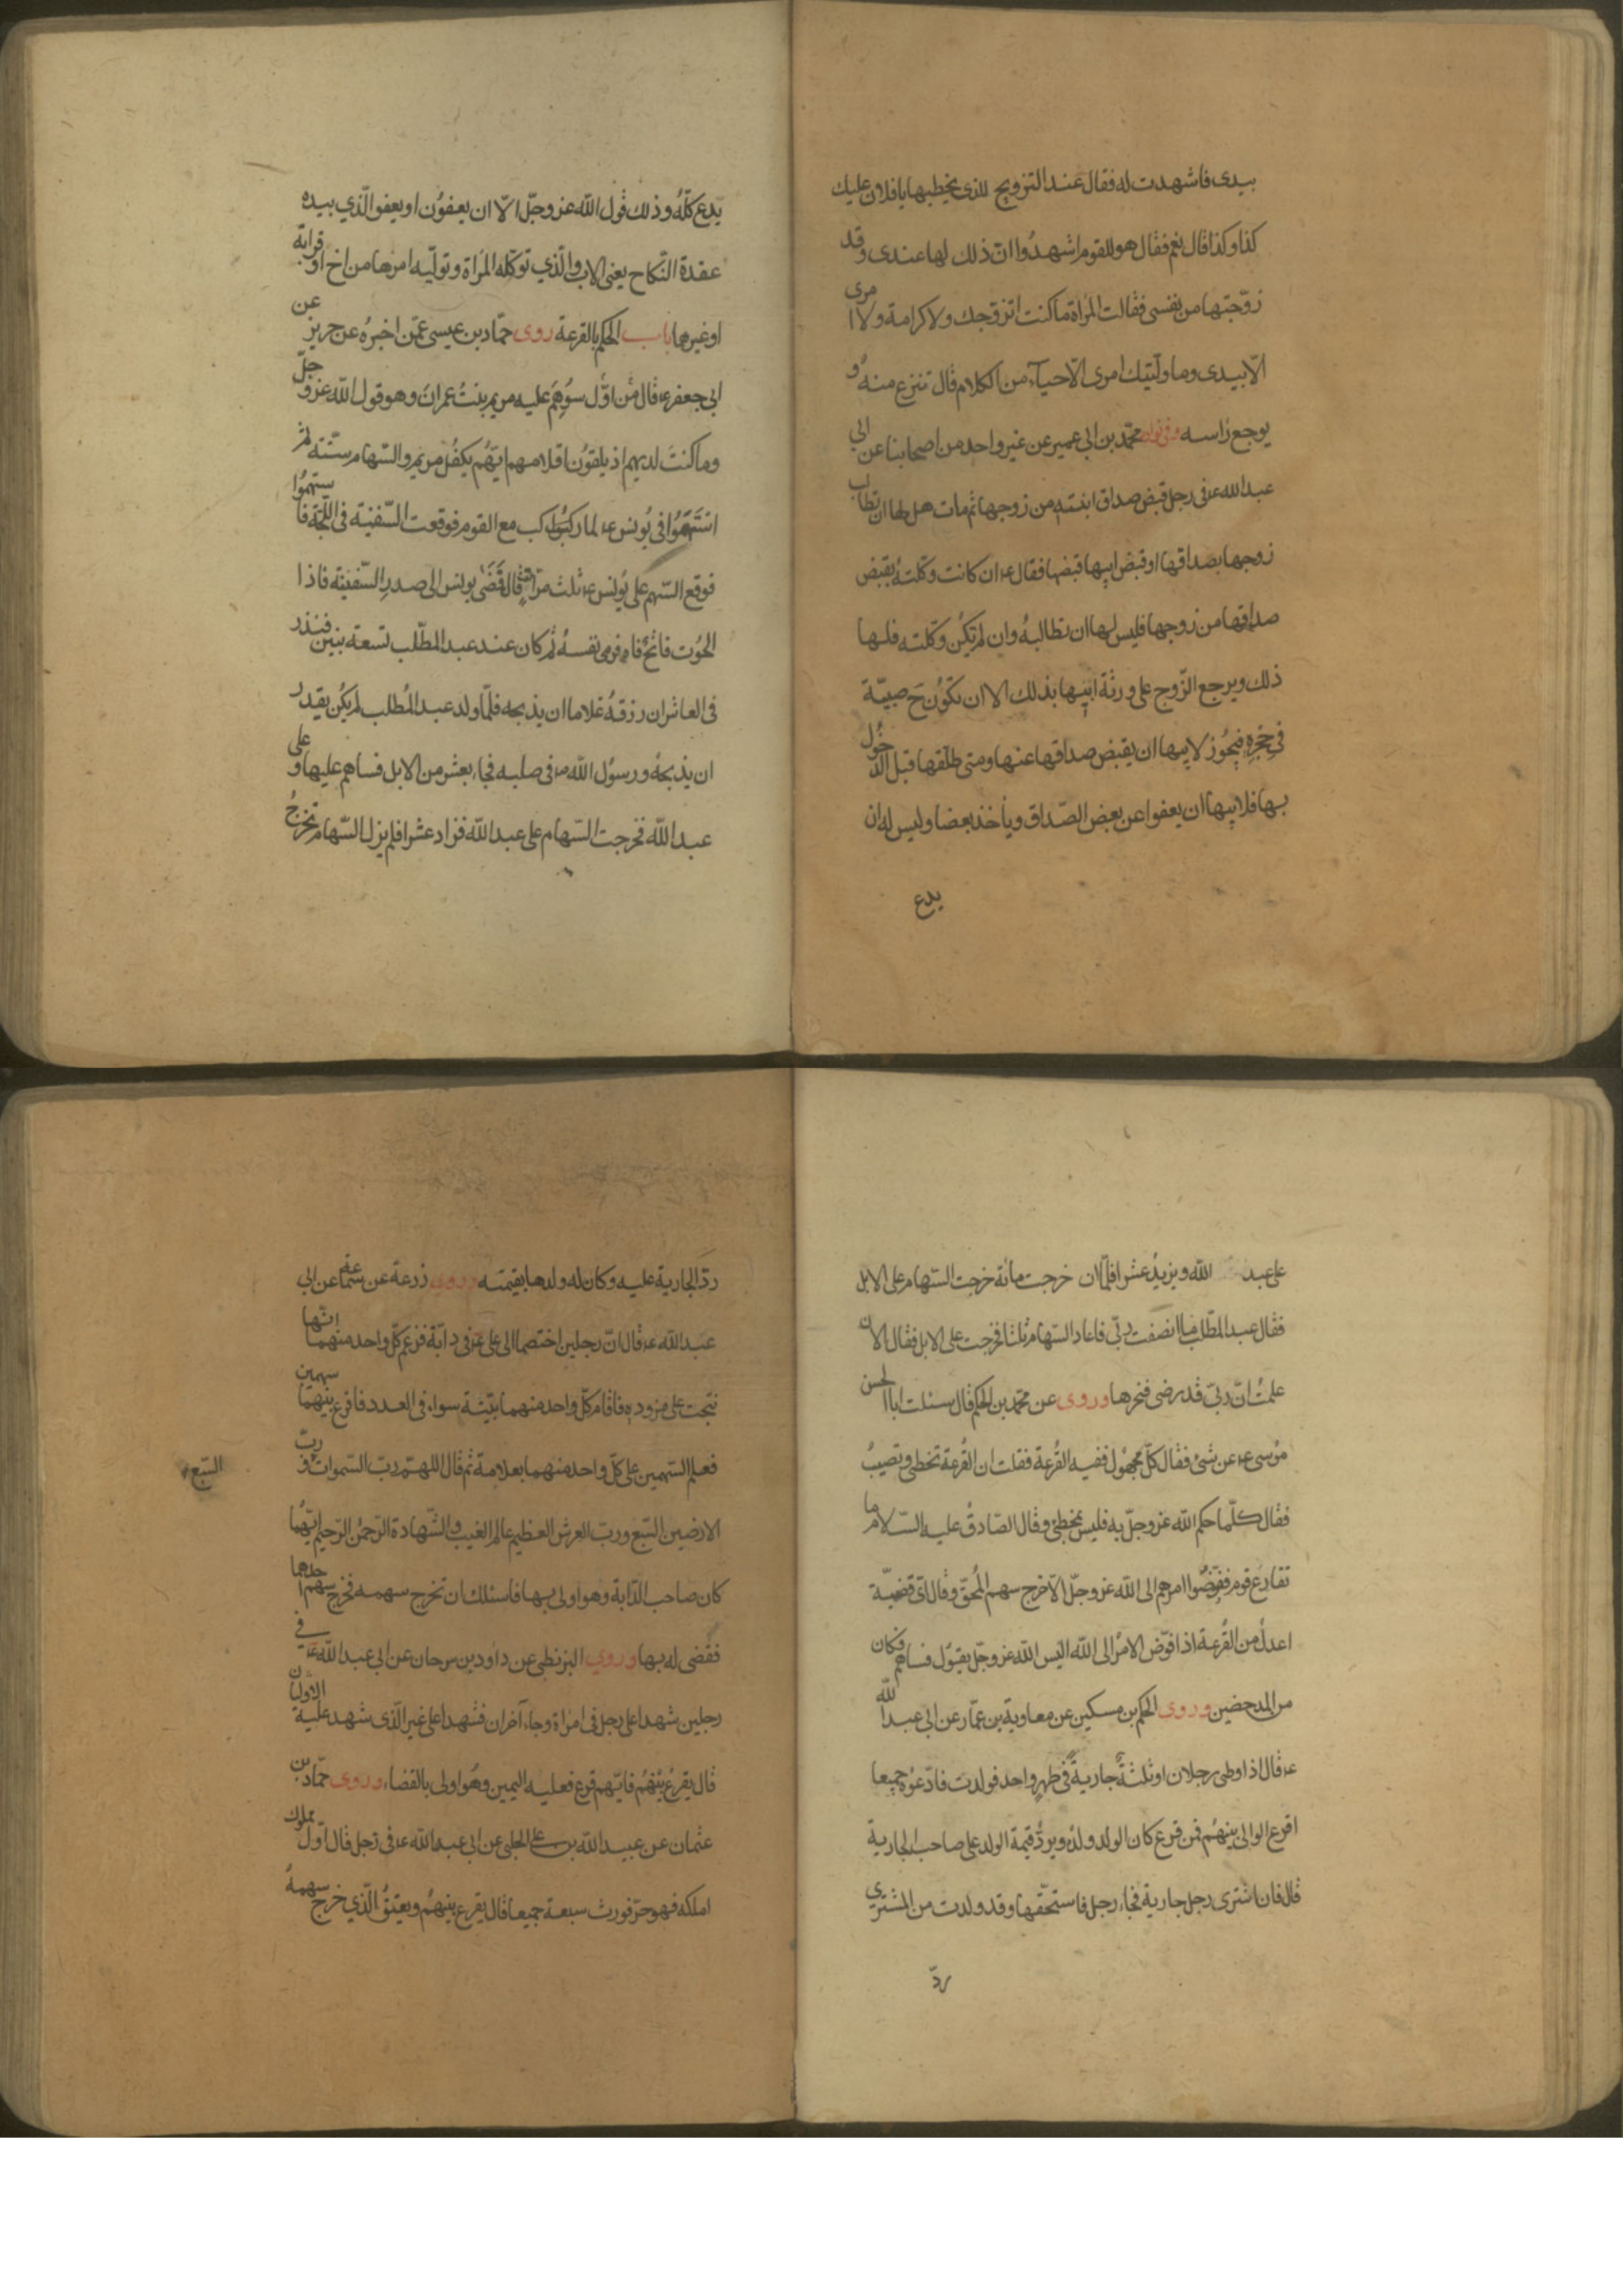 بيدى فاشهدت له فقال عند التزويج للذى يخطبها يا فلان عليك
كذا وكذا قال نعم فقال هو للقوم اشهدُوا انّ ذلك لها عندى وقد
زوّجتها من نفسى فقالت المرأة ما كنت اتزوّجك ولا كرامة ولا امرى
الّا بيدى وما ولّيتك امرى الّا حياء من الكلام قال تنزع منه و
يوجع رأسه وفى نوادر محمّد بن ابى عمير عن غير واحد من اصحابنا عن ابى
عبد الله ع فى رجل قبض صداق ابنته من زوجها ثم مات هل لها ان تطالب
زوجها بصداقها او قبض ابيها قبضها فقال ع ان كانت وكّلته بقبض
صداقها من زوجها فليس لها ان تطالبهُ وان لم تكُن وكّلته فلها
ذلك ويرجع الزّوج على ورثة ابيها بذلك الا ان تكوُن ح صبيّة
فى حجره فيجوُز لابيها ان يقبض صداقها عنها ومتى طلّقها قبل الدخُول
بها فلابيها ان يعفوا عن بعض الصّداق ويأخذ بعضا وليس له ان
يدع
يدع كلّهُ وذلك قول الله عز وجلّ الّا ان يعفوُن او يعفو الّذي بيده
عقدة النّكاح يعنى الاب والّذي توكّله المرأة وتولّيه امرها من اخ او قرابة
او غيرها باب الحكم بالقرعة روى حمّاد بن عيسى عمّن اخبرهُ عن حريز عن
ابى جعفر ع قال مَن اوّل سوُهِم عليه مريم بنتُ عمرانَ وهو قول الله عز وجلّ
وما كنتَ لديهم اذ يلقوُن اقلامهم ايّهُم يكفُل مريم والسّهام ستّة ثم
استَهَمُوا فى يُونس ع لما ركب مع القوم فوقعت السّفينة فى اللّجّة فاستهمُوا
فوقع السّهم على يُونس ع ثلث مرّات قال فَمَضٰى يونس الى صدرِ السّفينة فاذا
الحُوت فاتحٌ فاه فرمى نفسهُ ثم كان عند عبد المطّلب تسعة بنين فنذر
فى العاشر ان رزقهُ غلاما ان يذبحه فلمّا ولد عبد المُطلب لم يكُن يقدر
ان يذبحهُ ورسوُل الله ص فى صلبه فجاء بعشر من الابل فساهم عليها وعلى
عبد الله فخرجت السّهام على عبد الله فزاد عشرا فلم يزل السّهام تخرجُ
على عبد الله ويزيدُ عشرا فلمّا ان خرجت مائة خرجت السّهام على الابل
فقال عبد المطّلب ما انصفت ربّى فاعاد السّهام ثلثا فخرجت على الابل فقال الان
علمتُ انّ ربّى قد رضى فنحرها وروى عن محمّد بن الحكم قال سئلت ابا الحسن
موُسى ع عن شئ فقال كلّ مجهوُل ففيه القُرعة فقلت ان القُرعة تخطى وتصيبُ
فقال كلّما حكم الله عز وجلّ به فليس بمخطئ وقال الصّادقُ عليه السّلام ما
تقارع قوم ففوّضُوا امرهم الى الله عز وجلّ الّا خرج سهم المُحقّ وقال اىّ قضيّة
اعدلُ من القُرعة اذا فوّض الامرُ الى الله اليس الله عز وجلّ يقوُل فساهم فكان
من المدحضين وروى الحكم بن مسكين عن معاوية بن عمّار عن ابى عبد الله
ع قال اذا وطى رجلان او ثلثةٌ جاريةً فى طهرٍ واحد فولدت فادّعوُه جميعا
اقرع الوالى بينهُم فمن قرع كان الولد ولدهُ ويردُّ قيمة الولد على صاحب الجارية
قال فان اشترى رجل جارية فجاء رجل فاستحقّها وقد ولدت من المشترى
ردّ
ردّ الجارية عليه وكان له ولدها بقيمته وروى زرعة عن سماعة عن ابى
عبد الله ع قال انّ رجلين اختصما الى على ع فى دابّة فزعم كلّ واحد منهما انّها
نتجت على مزوده فاقام كلّ واحد منهما بيّنة سواء فى العدد فاقرع بينهما سهمين
فعلم السّهمين على كلّ واحد منهما بعلامة ثم قال اللهمّ ربّ السّموات وربّ
السّبع
الارضين السّبع وربّ العرش العظيم عالم الغيب والشّهادة الرّحمن الرّحيم ايّهُما
كان صاحب الدّابة وهو اولى بها فاسئلك ان تخرج سهمه فخرج سهم احدهما
فقضى له بها وروي البزنطى عن داود بن سرحان عن ابى عبد الله ع فى
رجلين شهدا على رجل فى امرأة وجاء آخران فشهدا على غير الّذى شهد عليه الاوّلان
قال يقرعُ بينهُم فايّهم قرع فعليه اليمين وهُو اولى بالقضاء وروى حمّاد بن
عثمان عن عبيد الله بن على الحلبى عن ابى عبد الله ع فى رجل قال اوّل مملوك
املكه فهو حرّ فورث سبعة جميعا قال يقرع بينهُم ويعتقُ الّذي خرج سهمهُ